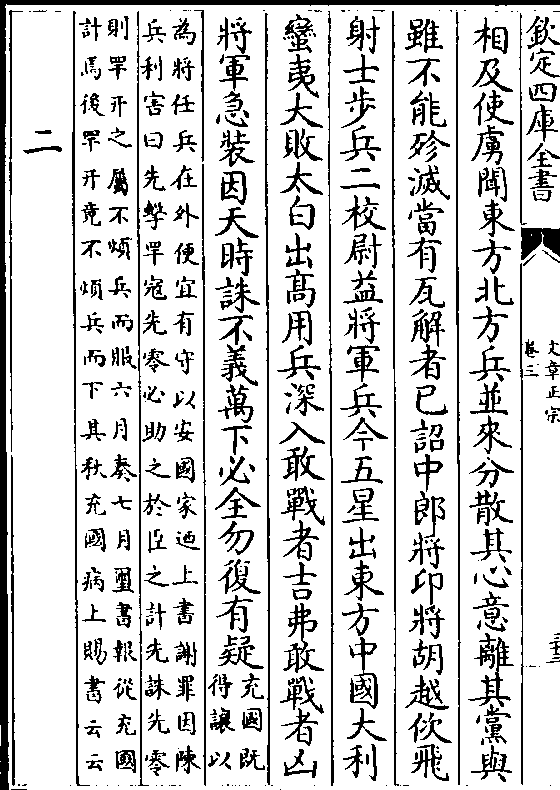 欽定四庫全書
文章正宗
卷三
相及使虜聞東方北方兵並來分散其心意離其黨與
雖不能殄滅當有瓦解者已詔中郎將卬將胡越佽飛
射士步兵二校尉益將軍兵今五星出東方中國大利
蠻夷大敗太白出高用兵深入敢戰者吉弗敢戰者凶
將軍急裝因天時誅不義萬下必全勿復有疑
充國既
得讓以
為將任兵在外便宜有守以安國家廼上書謝罪因陳
兵利害曰先擊䍐寇先零必助之於臣之計先誅先零
則䍐幵之屬不煩兵而服六月奏七月璽書報從充國
計焉後䍐幵竟不煩兵而下其秋充國病上賜書云云
二